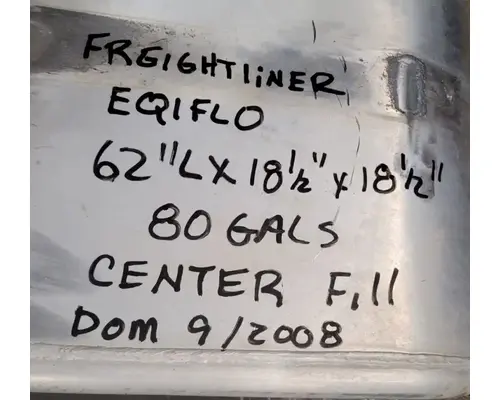 FREIGHTLINER
EQIFLO
62"L X 18 1/2" x 18 1/2"
80 GALS
CENTER Fill
Dom 9/2008